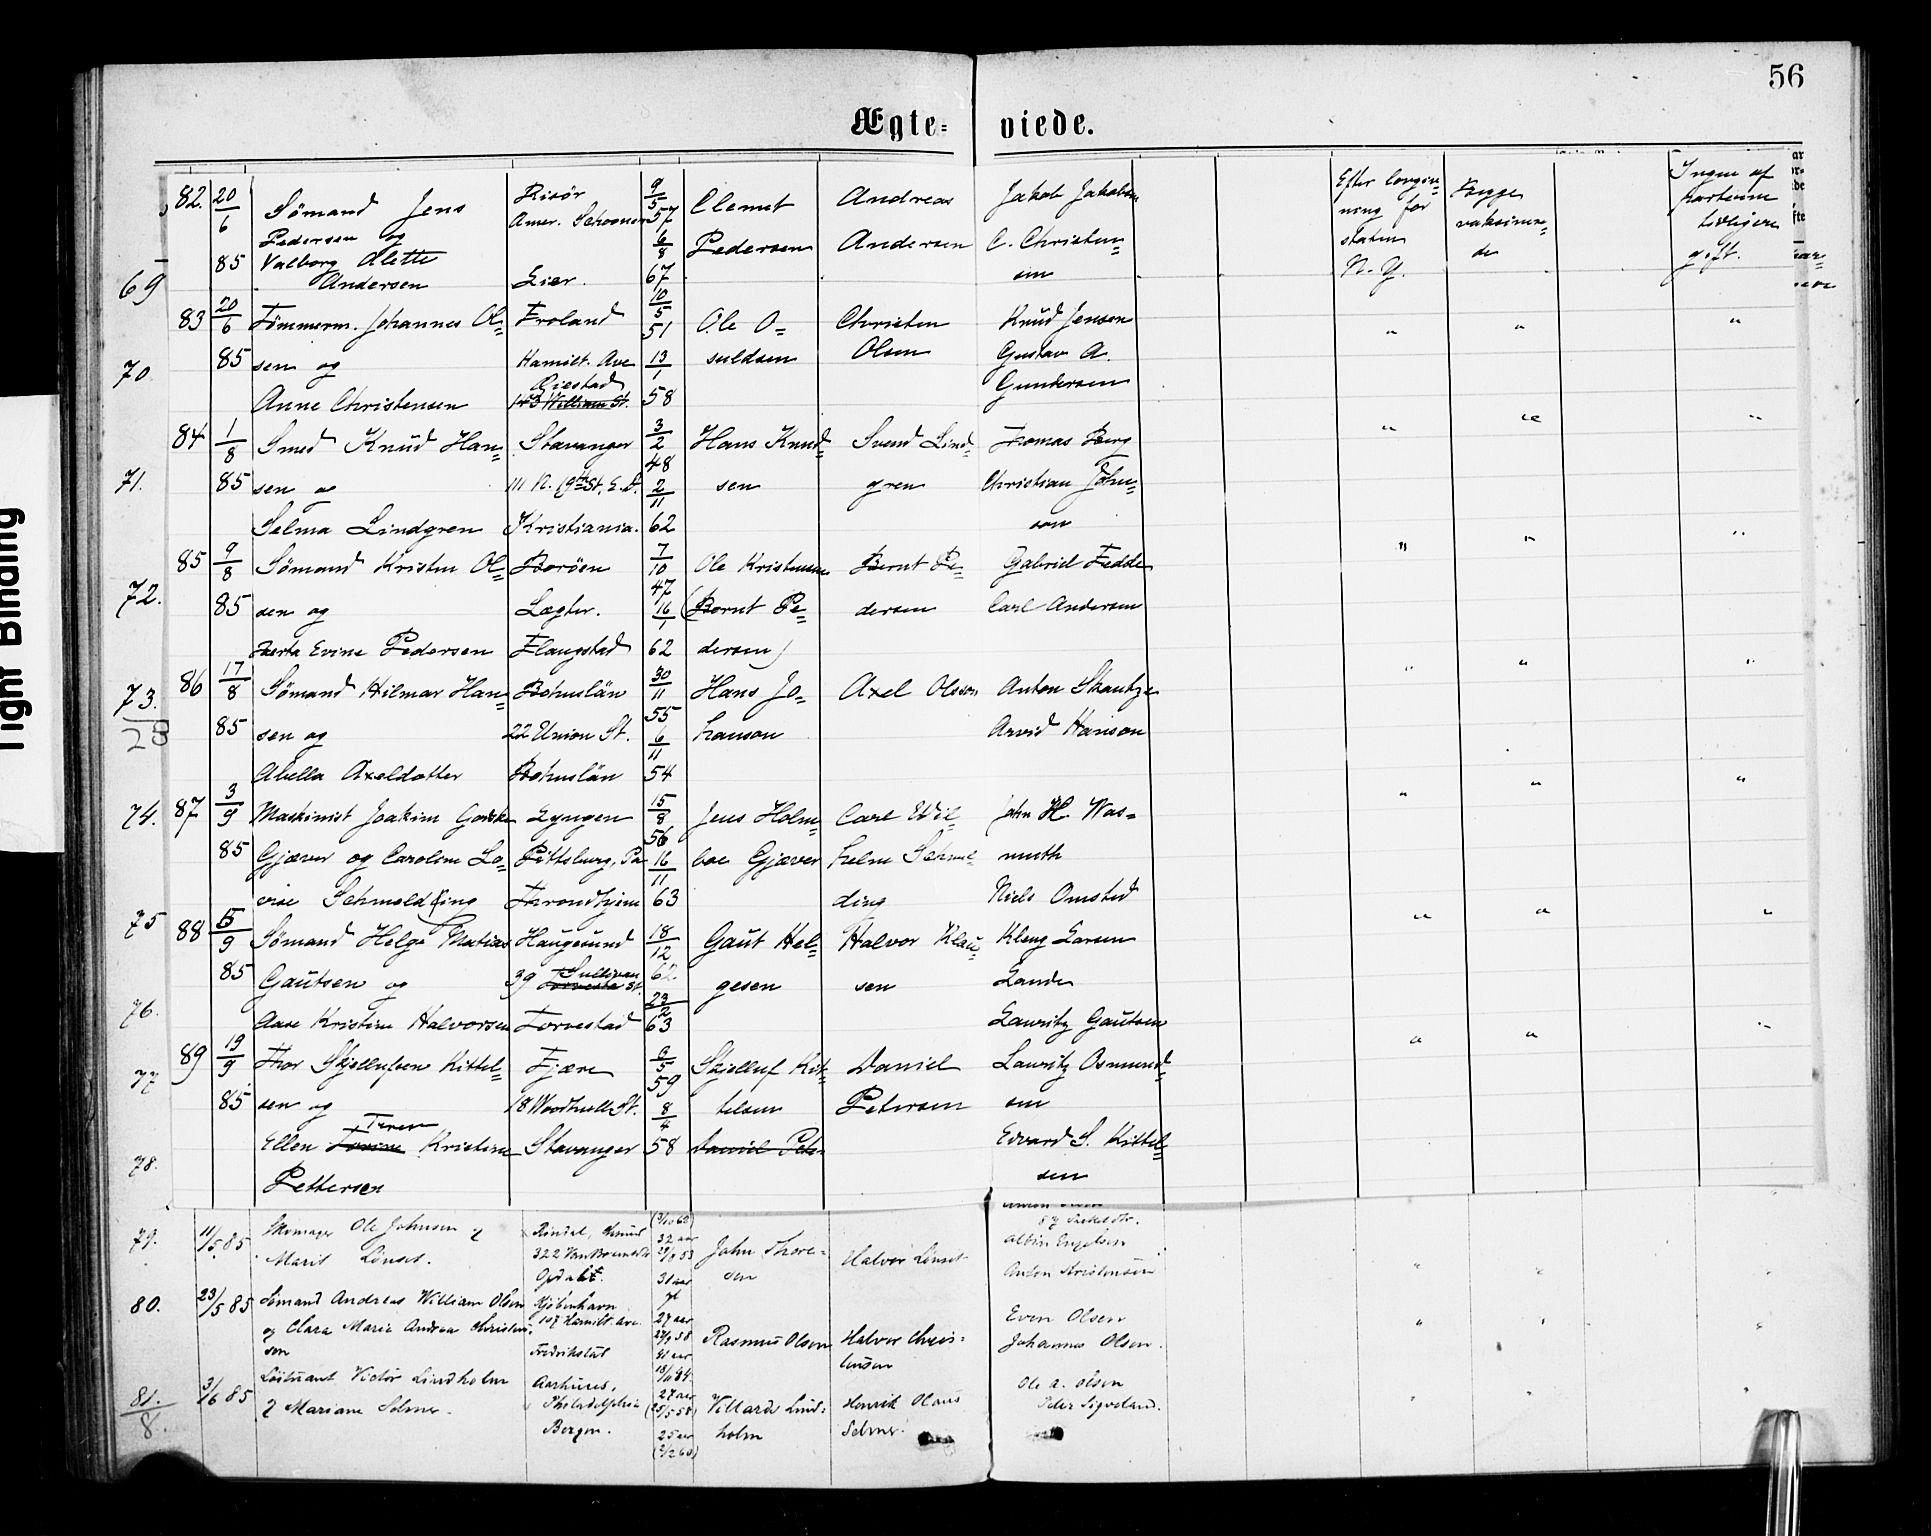 56
Ægte= viede.
82. 20/6 85
Sømand Jens
Pedersen og
Valborg Alette
Andersen
Risör
Amer. Schooner
Lier.
9/5 57
6/8 67
Clemet
Pedersen
Andreas
Andersen
Jakob Jakobsen
C. Christen=
sen
Efter lovgiv=
ning for
staten
N. Y.
Begge
vaksinere=
de
Ingen af
parterne
tidligere
gift.
69
83 20/6 85
Tömmerm. Johannes Ol=
sen og
Anne Christensen
Froland
Hamilt. Ave
Riestad
143 William St.
10/5 51
13/1 58
Ole O=
suldsen
Christen
Olsen
Knud Jensen
Gustav A.
Gundersen
" " "
70.
84 1/8 85
Smed Knud Han=
sen og
Selma Lindgren
Stavanger
111 N. 9th St. E. D.
Kristiania.
3/2 48
2/11 62
Hans Knud=
sen
Svend Lind=
gren
Thomas Berg
Christian John=
son
" " "
71.
85 9/8 85
Sømand Kristen Ol=
sen og
Berta Evine Pedersen
Borøen
Lægter.
Flangstad
7/10 47
16/1 62
Ole Kristensen
(Bernt Pe=
dersen)
Bernt Pe=
dersen
Gabriel Fedde
Carl Andersen
" " "
72.
86 17/8 85
Sømand Hilmar Han=
sen og
Abella Axeldotter
Bohuslän
22 Union St.
Bohuslän
30/11 55
6/11 54
Hans Jo=
hanson
Axel Olsson
Anton Skantze
Arvid Hanson
" " "
73.
28
87 3/9 85
Maskinist Joakim Godske
Gjæver og Caroline Lo=
vise Schmelding
Lyngen
Pittsburg, Pa
Throndhjem
15/8 56
16/11 63
Jens Holm=
boe Gjæver
Carl Wil=
helm Schmel=
ding
John H. Was=
muth
Niels Omsted
" " "
74.
88 5/9 85
Sømand Helge Matias
Gautsen og
Aase Kristine Halvorsen
Haugesund
39 Sullivan St.
Torvestad
18/12 62
23/2 63
Gaut Hel=
gesen
Halvor Klau=
sen
Kleng Larsen
Lande
Lauritz Gautsen
" " "
75
76.
89 19/9 85
Thor Skjellufsen Kittel=
sen og
Teren
Ellen Kristine
Pettersen
Fjære
18 Woodhull St.
Stavanger
9/5 59
8/4 58
Skjelluf Kit=
telsen
Daniel Pete
Daniel
Petersen
Lauritz Osmund=
sen
Edvard S. Kittel=
sen
" " "
77
78.
79. 11/5 85
Skomager Ole Johnsen &
Marit Lönset.
Rindal,
322 Van Brunt St
Opdal
32 aar
29/9 53
John Thore=
sen
Halvor Lönset
Albin Engelsen
Anton Kristensen
" " "
80. 23/5 85
Sömand Andreas William Olsen
og Clara Marie Andrea Christen=
sen
Kjöbenhavn
107 Hamilt. Ave.
Fredrikstad
27 aar
Rasmus Olsen
Halvor Chris=
tensen
Even Olsen
Johannes Olsen.
" " "
81. 3/6 85
Löitnant Victor Lindholm
& Mariane Selmer.
Aarhuus,
Philadelphia
Bergen.
27 aar
25 aar
(2/2 60)
Villards Lind=
holm
Henrik Olaus
Selmer.
Ole A. Olsen
Peter Sigveland.
" " "
8.
Tight Binding